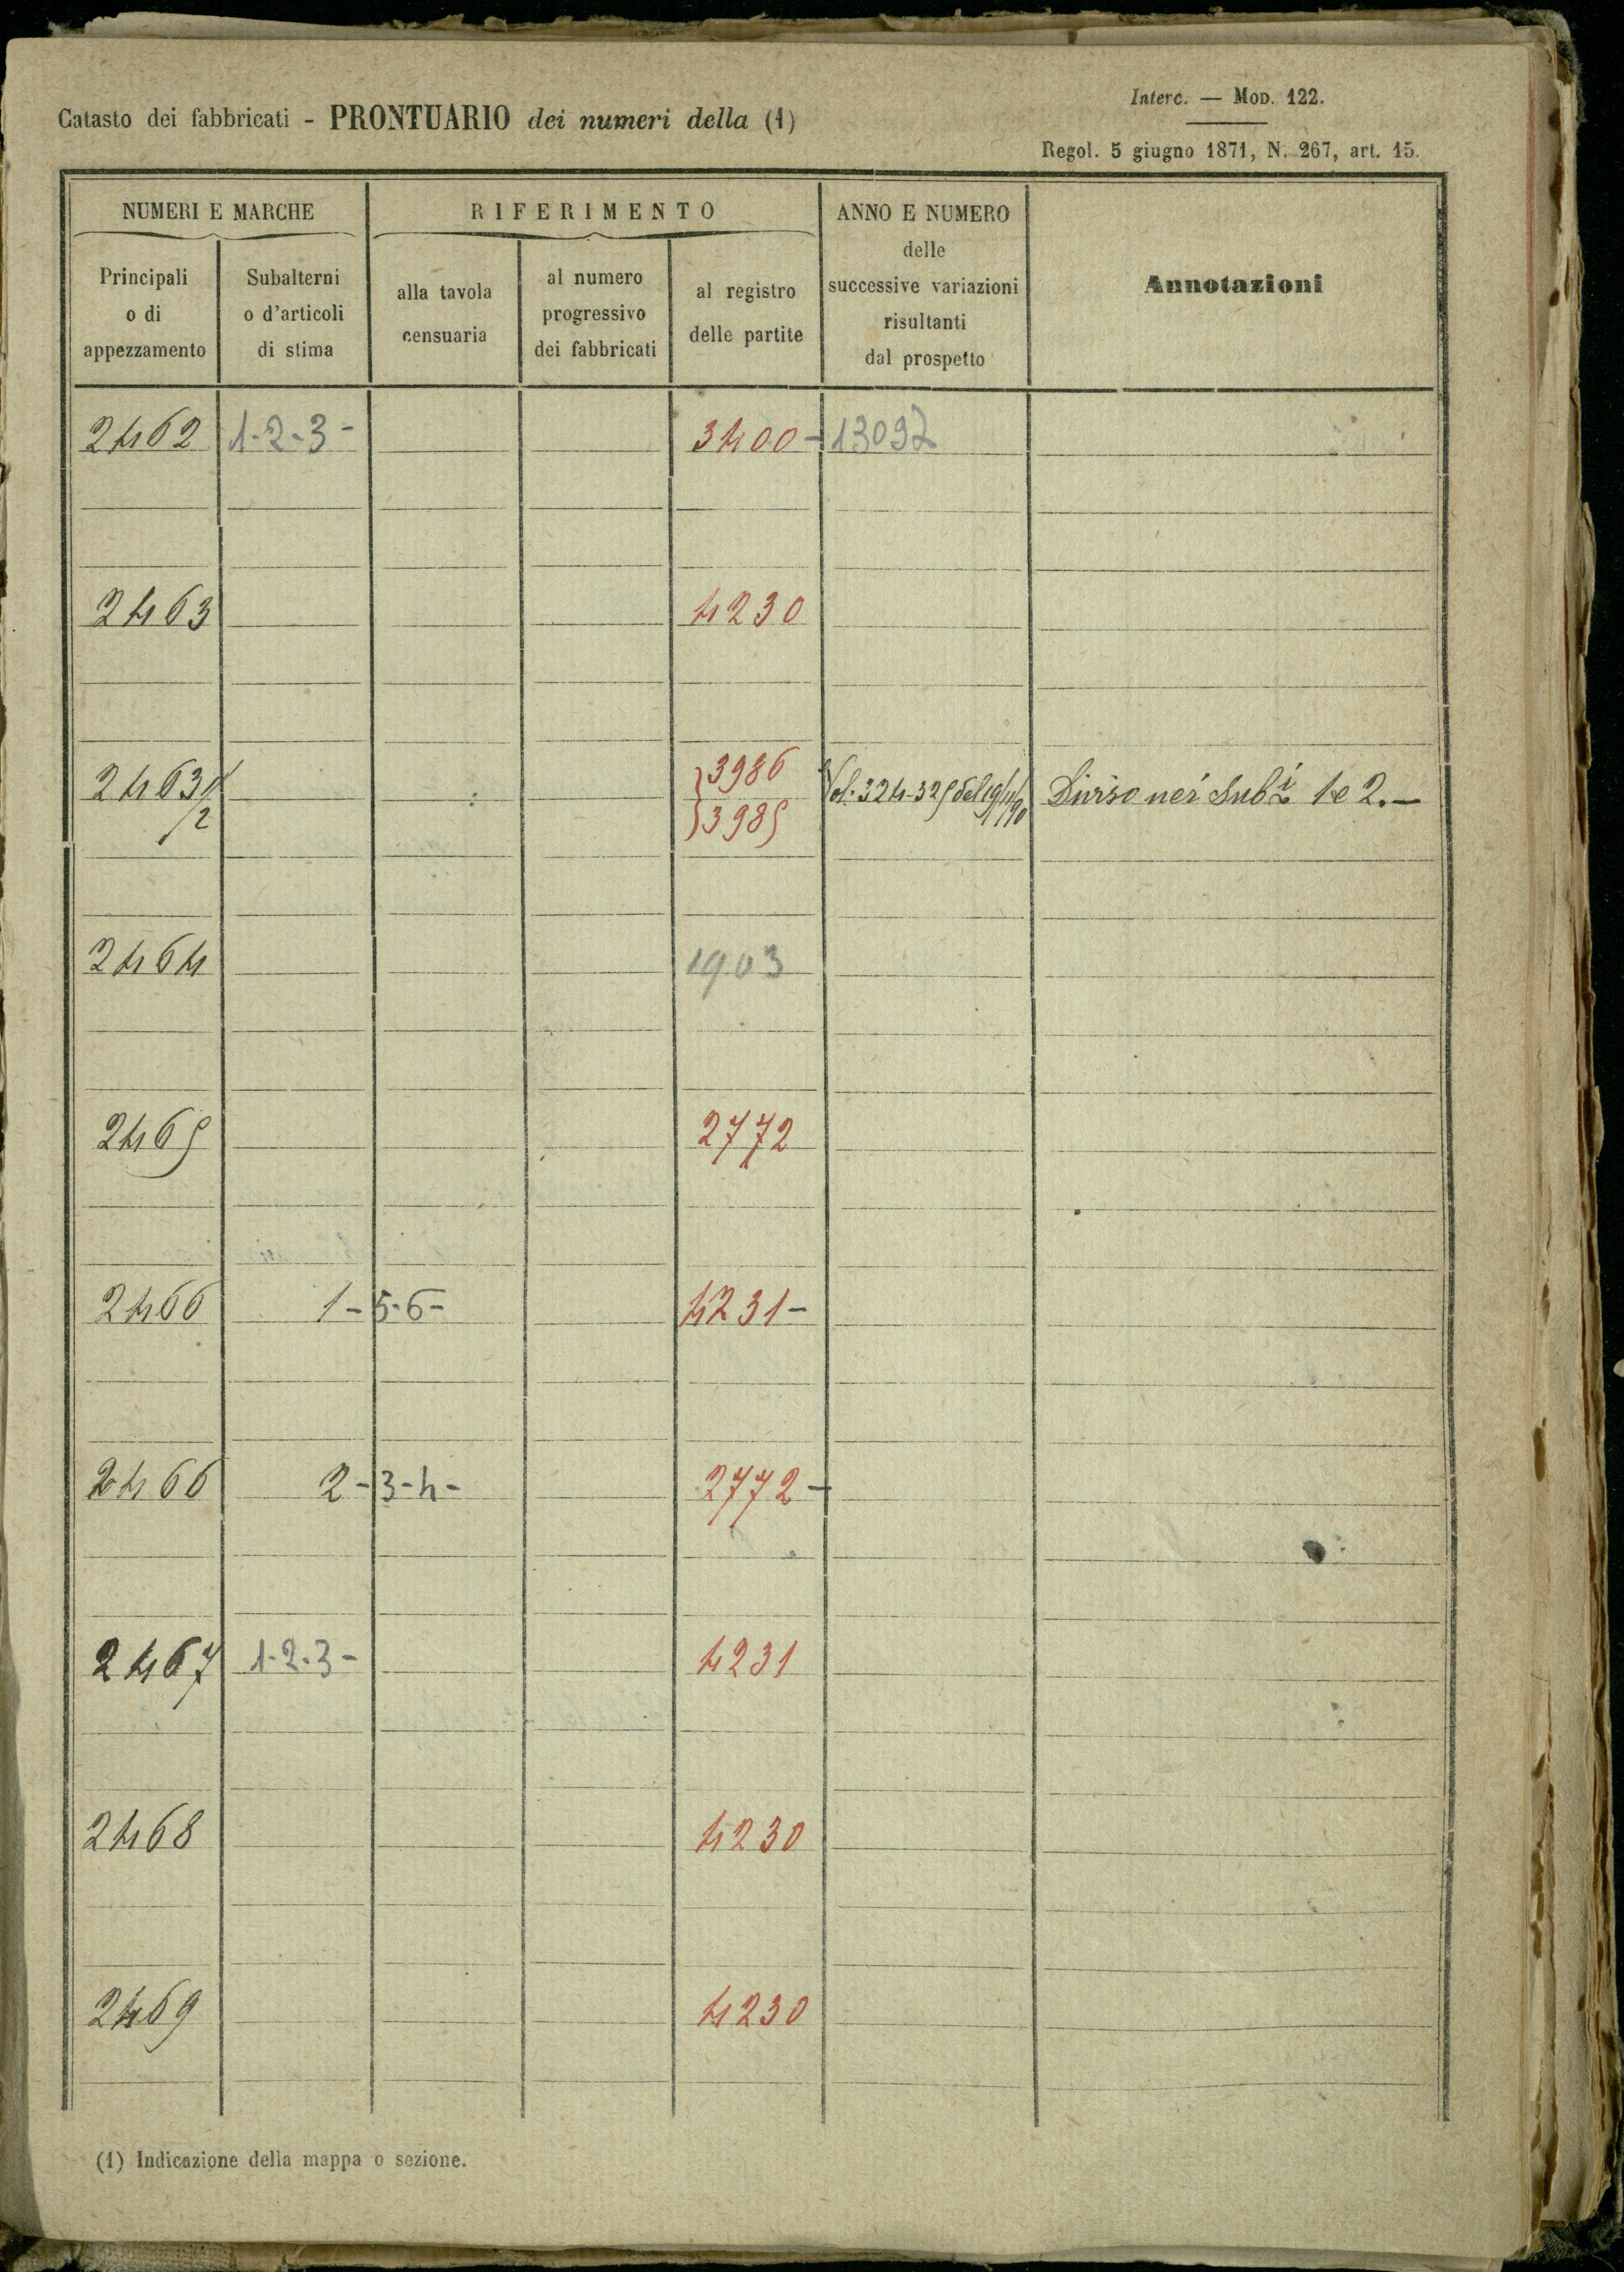 Interc. — Mod. 122.
Catasto dei fabbricati - PRONTUARIO dei numeri della (1)
Regol. 5 giugno 1871, N. 267, art. 15.
NUMERI E MARCHE RIFERIMENTO ANNO E NUMERO
delle
successive variazioni
risultanti
dal prospetto
Annotazioni
Principali
o di
appezzamento
Subalterni
o d'articoli
di stima
alla tavola
censuaria
al numero
progressivo
dei fabbricati
al registro
delle partite
2462 1-2-3- 3400- 13092
2463 4230
2463 1/ 3986 Vol. 324-325 del 19/11/90 Diviso nei Subi 1 e 2.—
/2 3985
2464 1903
2465 2772
2466 1-5-6- 4231-
2466 2-3-4- 2772-
2467 1-2-3- 4231
2468 4230
2469 4230
(1) Indicazione della mappa o sezione.